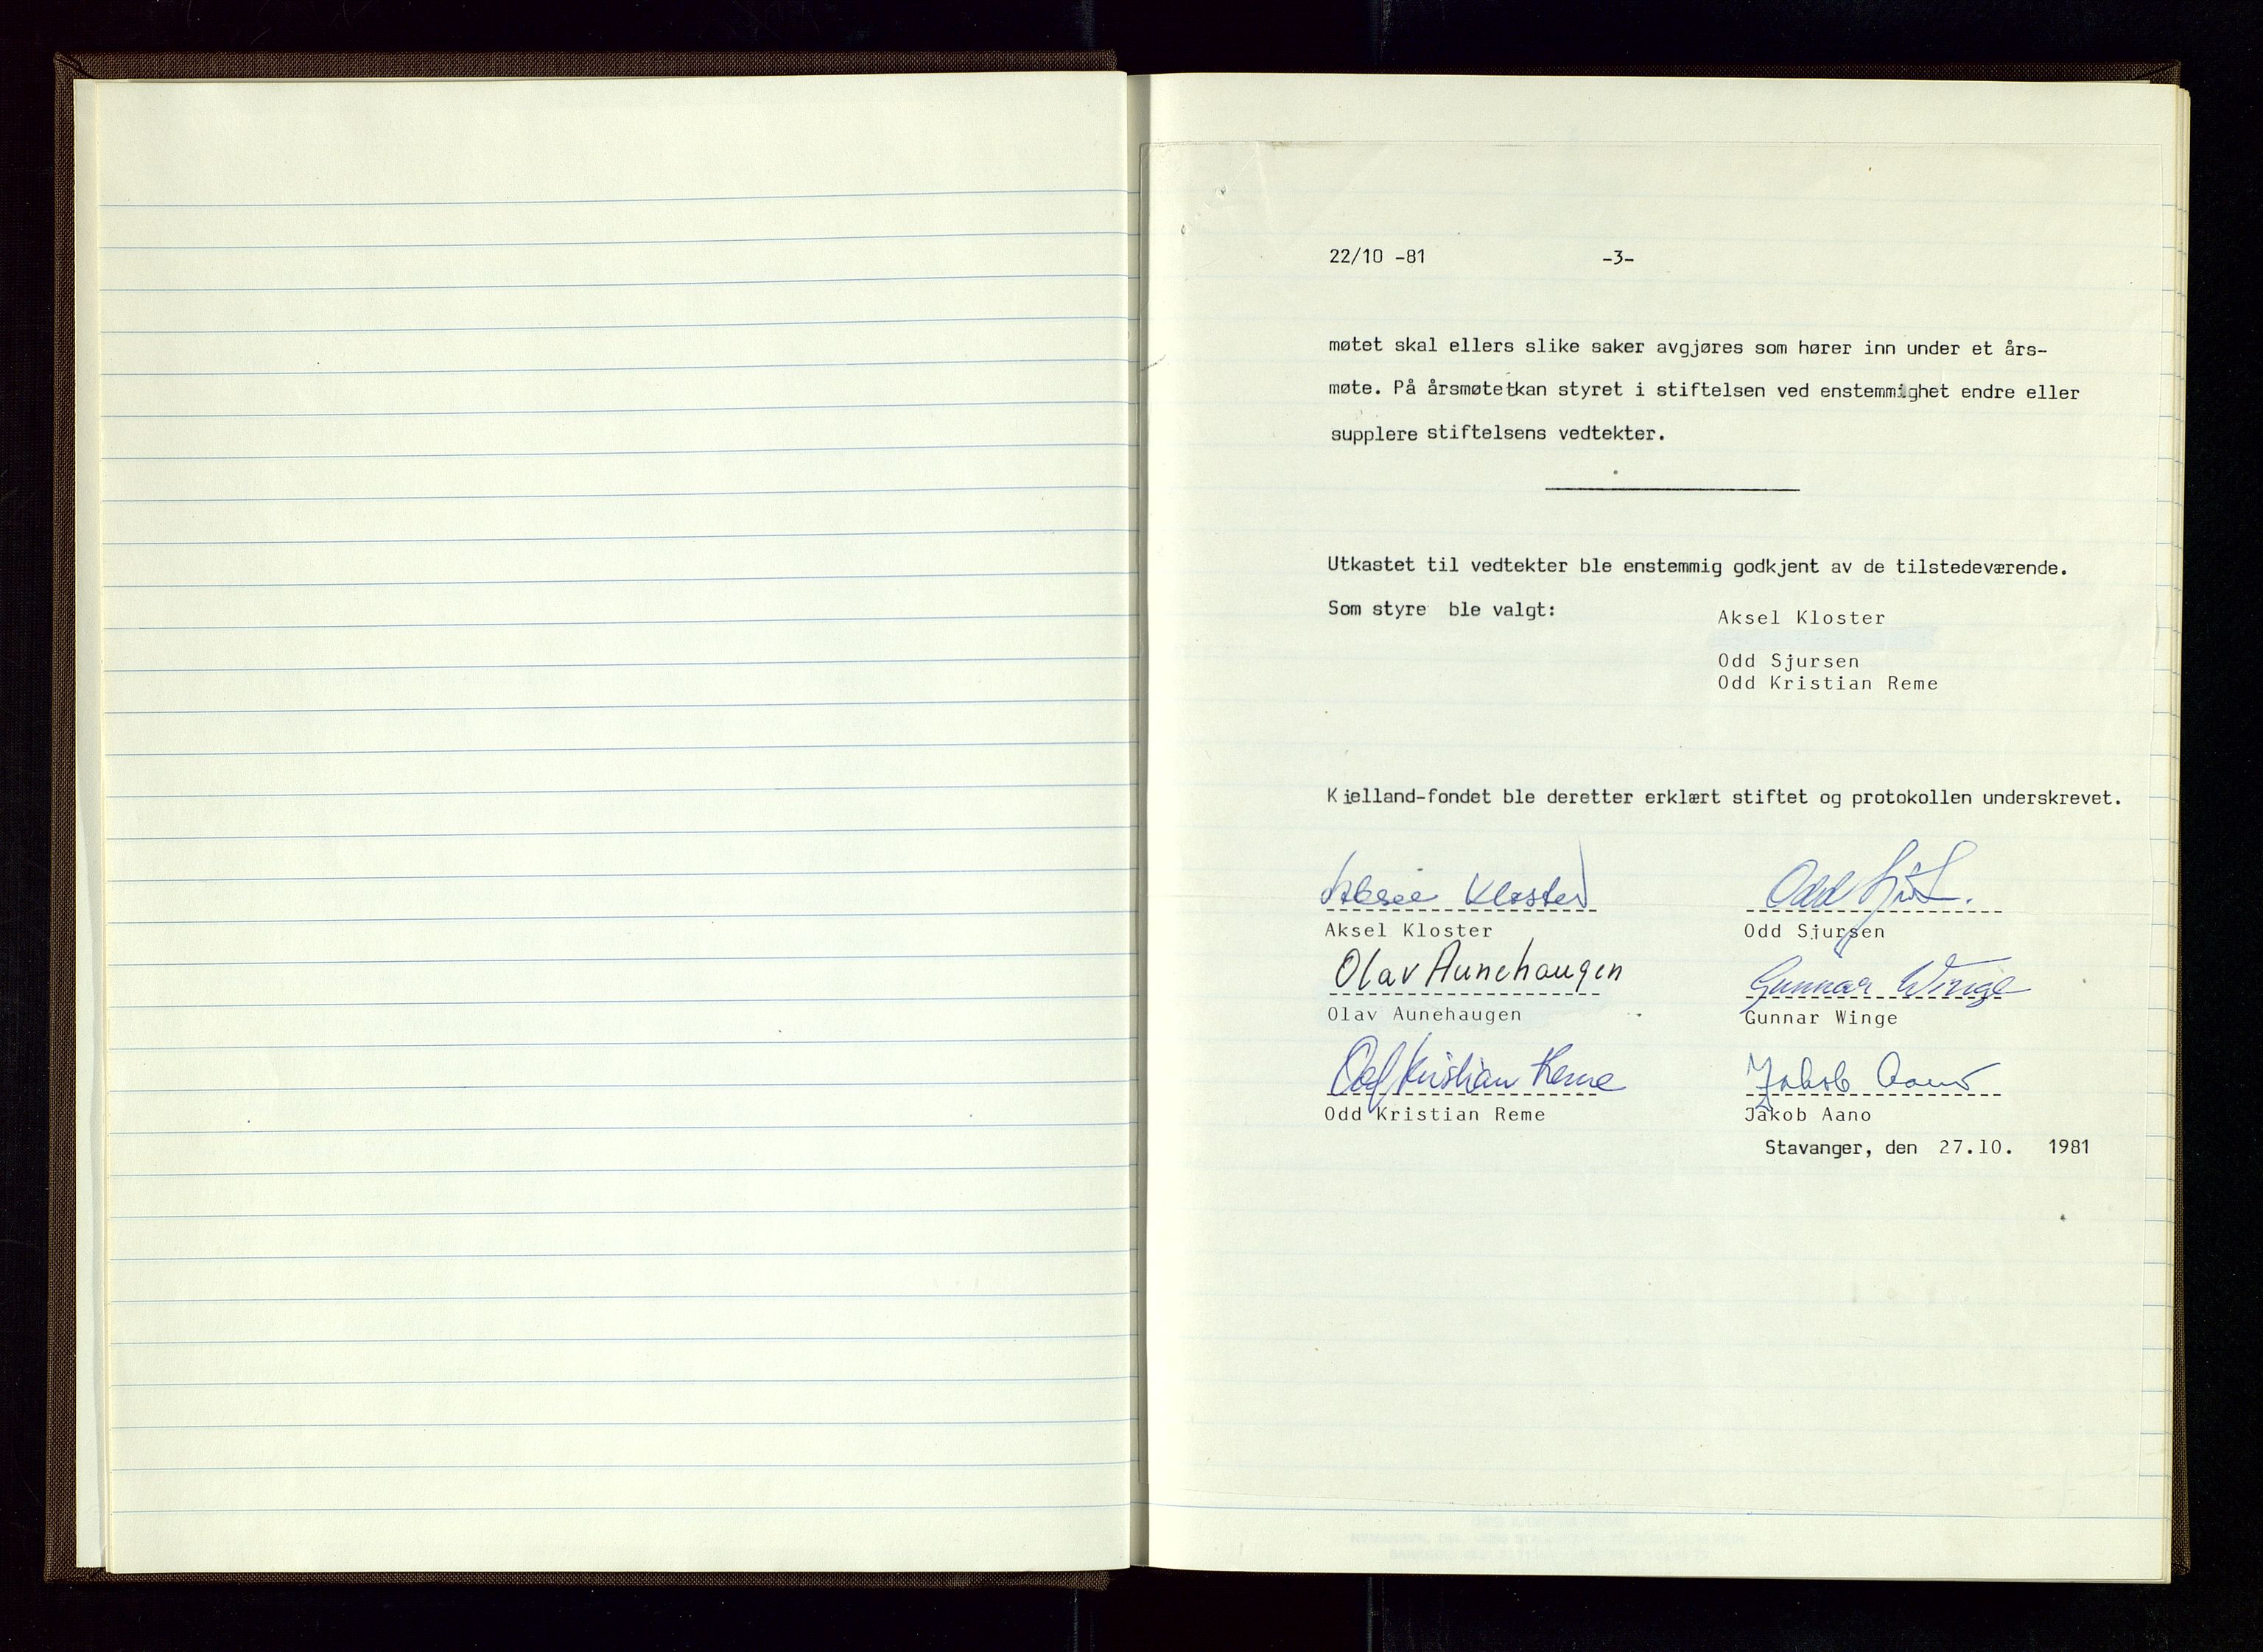 22/10 -81 -3-
møtet skal ellers slike saker avgjøres som hører inn under et års-
møte. På årsmøtetkan styret i stiftelsen ved enstemmighet endre eller
supplere stiftelsens vedtekter.
Utkastet til vedtekter ble enstemmig godkjent av de tilstedeværende.
Som styre ble valgt: Aksel Kloster
Odd Sjursen
Odd Kristian Reme
Kielland-fondet ble deretter erklært stiftet og protokollen underskrevet.
Aksel Kloster Odd
Aksel Kloster Odd Sjursen
Olav Aunehaugen Gunnar Winge
Olav Aunehaugen Gunnar Winge
Odd Kristian Reme Jakob Aano
Odd Kristian Reme Jakob Aano
Stavanger, den 27.10. 1981